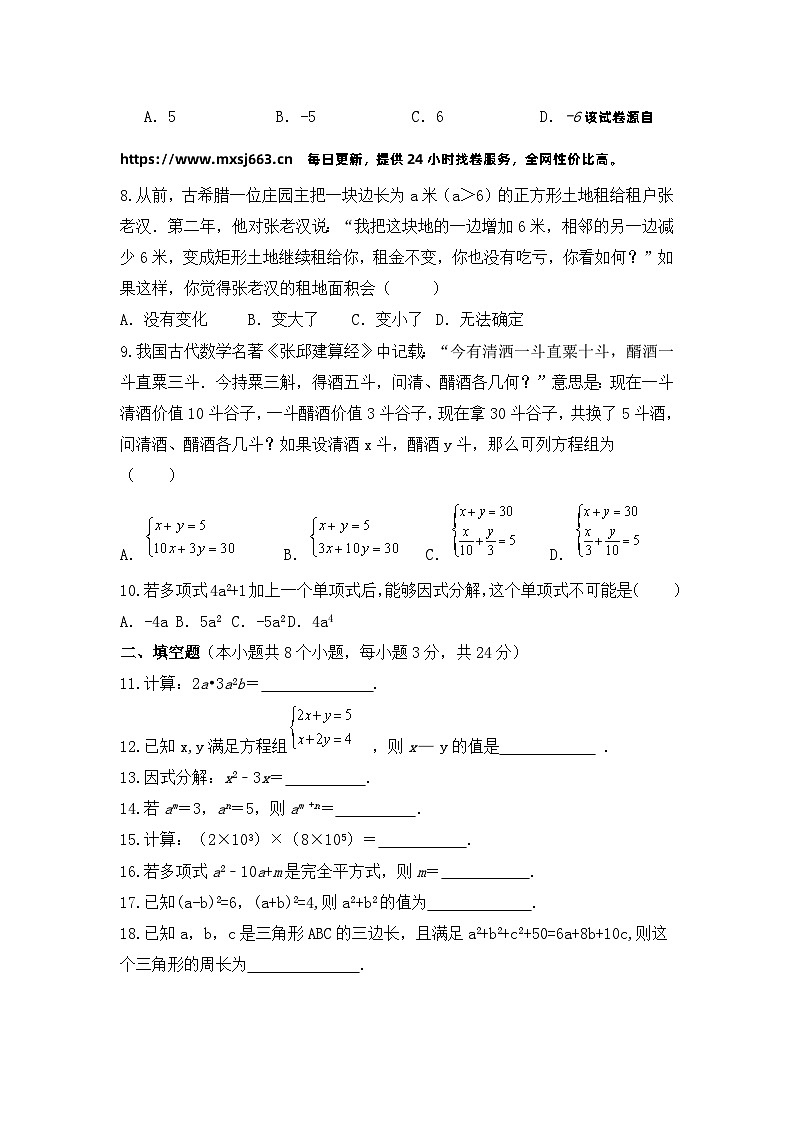 A. 5 B. -5 C. 6 D. -6该试卷源自
https://www.mxsj663.cn 每日更新，提供24小时找卷服务，全网性价比高。
8.从前，古希腊一位庄园主把一块边长为a米（a＞6）的正方形土地租给租户张
老汉．第二年，他对张老汉说：“我把这块地的一边增加6米，相邻的另一边减
少6米，变成矩形土地继续租给你，租金不变，你也没有吃亏，你看如何？”如
果这样，你觉得张老汉的租地面积会（ ）
A．没有变化 B．变大了 C．变小了 D．无法确定
9.我国古代数学名著《张邱建算经》中记载：“今有清酒一斗直粟十斗，醑酒一
斗直粟三斗．今持粟三斛，得酒五斗，问清、醑酒各几何？”意思是：现在一斗
清酒价值10斗谷子，一斗醑酒价值3斗谷子，现在拿30斗谷子，共换了5斗酒，
问清酒、醑酒各几斗？如果设清酒x斗，醑酒y斗，那么可列方程组为
（ ）
A. {x+y=5 10x+3y=30 B. {x+y=5 3x+10y=30 C. {x+y=30 x/10+y/3=5 D. {x+y=30 x/3+y/10=5
10.若多项式4a²+1加上一个单项式后,能够因式分解,这个单项式不可能是( )
A. -4a B. 5a² C. -5a² D. 4a⁴
二、填空题（本小题共8个小题，每小题3分，共24分）
11.计算：2a•3a²b＝______________.
12.已知x,y满足方程组{2x+y=5 x+2y=4 ，则x— y的值是____________ .
13.因式分解：x²﹣3x＝__________.
14.若aᵐ＝3，aⁿ＝5，则aᵐ ⁺ⁿ＝__________.
15.计算：（2×10³）×（8×10⁵）＝___________.
16.若多项式a²﹣10a+m是完全平方式，则m＝___________.
17.已知(a-b)²=6，(a+b)²=4,则a²+b²的值为_____________.
18.已知a，b，c是三角形ABC的三边长，且满足a²+b²+c²+50=6a+8b+10c,则这
个三角形的周长为______________.